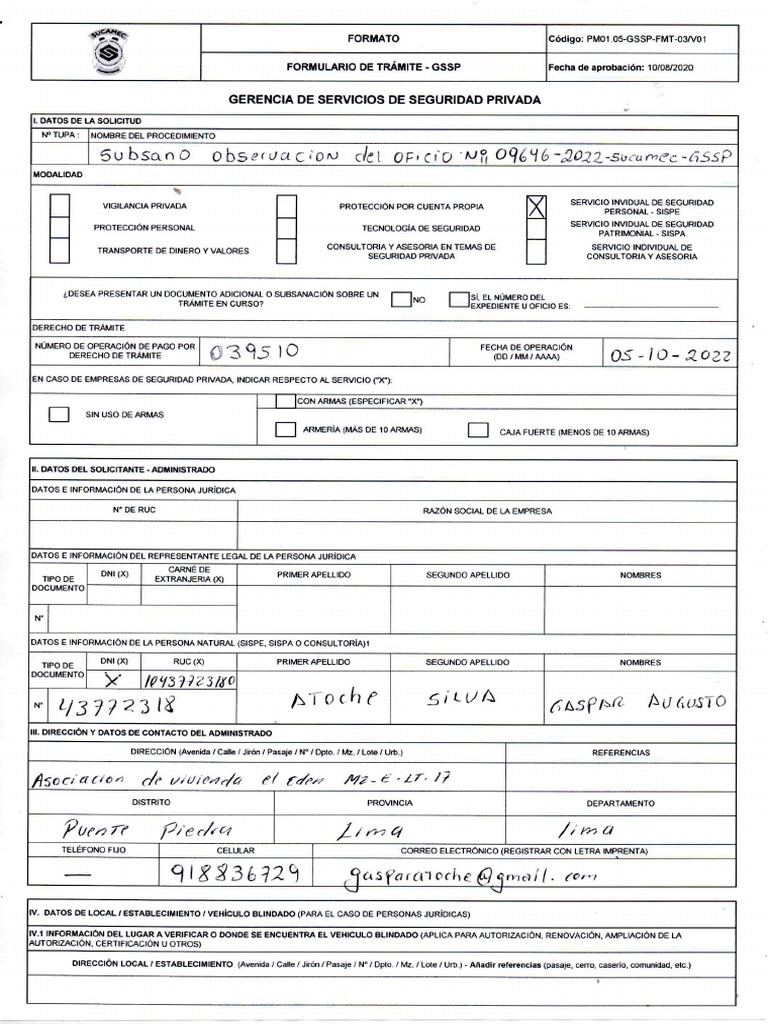 SUCAMEC
FORMATO
Código: PM01.05-GSSP-FMT-03/V01
FORMULARIO DE TRÁMITE - GSSP
Fecha de aprobación: 10/08/2020
GERENCIA DE SERVICIOS DE SEGURIDAD PRIVADA
I. DATOS DE LA SOLICITUD
Nº TUPA : NOMBRE DEL PROCEDIMIENTO
Subsano Observacion del OFICIO Nº 09646-2022-Sucamec-GSSP
MODALIDAD
VIGILANCIA PRIVADA
PROTECCIÓN POR CUENTA PROPIA
X SERVICIO INVIDUAL DE SEGURIDAD
PERSONAL - SISPE
PROTECCIÓN PERSONAL
TECNOLOGÍA DE SEGURIDAD
SERVICIO INVIDUAL DE SEGURIDAD
PATRIMONIAL - SISPA
TRANSPORTE DE DINERO Y VALORES
CONSULTORIA Y ASESORIA EN TEMAS DE
SEGURIDAD PRIVADA
SERVICIO INDIVIDUAL DE
CONSULTORIA Y ASESORIA
¿DESEA PRESENTAR UN DOCUMENTO ADICIONAL O SUBSANACIÓN SOBRE UN
TRÁMITE EN CURSO?
NO
SÍ, EL NÚMERO DEL
EXPEDIENTE U OFICIO ES:
DERECHO DE TRÁMITE
NÚMERO DE OPERACIÓN DE PAGO POR
DERECHO DE TRÁMITE
039510
FECHA DE OPERACIÓN
(DD / MM / AAAA)
05-10-2022
EN CASO DE EMPRESAS DE SEGURIDAD PRIVADA, INDICAR RESPECTO AL SERVICIO ("X"):
SIN USO DE ARMAS
CON ARMAS (ESPECIFICAR "X")
ARMERÍA (MÁS DE 10 ARMAS)
CAJA FUERTE (MENOS DE 10 ARMAS)
II. DATOS DEL SOLICITANTE - ADMINISTRADO
DATOS E INFORMACIÓN DE LA PERSONA JURÍDICA
Nº DE RUC
RAZÓN SOCIAL DE LA EMPRESA
DATOS E INFORMACIÓN DEL REPRESENTANTE LEGAL DE LA PERSONA JURÍDICA
TIPO DE
DOCUMENTO
DNI (X)
CARNÉ DE
EXTRANJERIA (X)
PRIMER APELLIDO
SEGUNDO APELLIDO
NOMBRES
Nº
DATOS E INFORMACIÓN DE LA PERSONA NATURAL (SISPE, SISPA O CONSULTORÍA)1
TIPO DE
DOCUMENTO
DNI (X)
RUC (X)
PRIMER APELLIDO
SEGUNDO APELLIDO
NOMBRES
X 10437723180
Nº 43772318
ATOCHE
SILVA
GASPAR AUGUSTO
III. DIRECCIÓN Y DATOS DE CONTACTO DEL ADMINISTRADO
DIRECCIÓN (Avenida / Calle / Jirón / Pasaje / Nº / Dpto. / Mz. / Lote / Urb.)
REFERENCIAS
Asociacion de vivienda el Eden MZ-E-LT-17
DISTRITO
PROVINCIA
DEPARTAMENTO
Puente Piedra
Lima
lima
TELÉFONO FIJO
CELULAR
CORREO ELECTRÓNICO (REGISTRAR CON LETRA IMPRENTA)
—
918836729
gasparatoche@gmail.com
IV. DATOS DE LOCAL / ESTABLECIMIENTO / VEHÍCULO BLINDADO (PARA EL CASO DE PERSONAS JURÍDICAS)
IV.1 INFORMACIÓN DEL LUGAR A VERIFICAR O DONDE SE ENCUENTRA EL VEHICULO BLINDADO (APLICA PARA AUTORIZACIÓN, RENOVACIÓN, AMPLIACIÓN DE LA
AUTORIZACIÓN, CERTIFICACIÓN U OTROS)
DIRECCIÓN LOCAL / ESTABLECIMIENTO (Avenida / Calle / Jirón / Pasaje / Nº / Dpto. / Mz. / Lote / Urb.) - Añadir referencias (pasaje, cerro, caserío, comunidad, etc.)